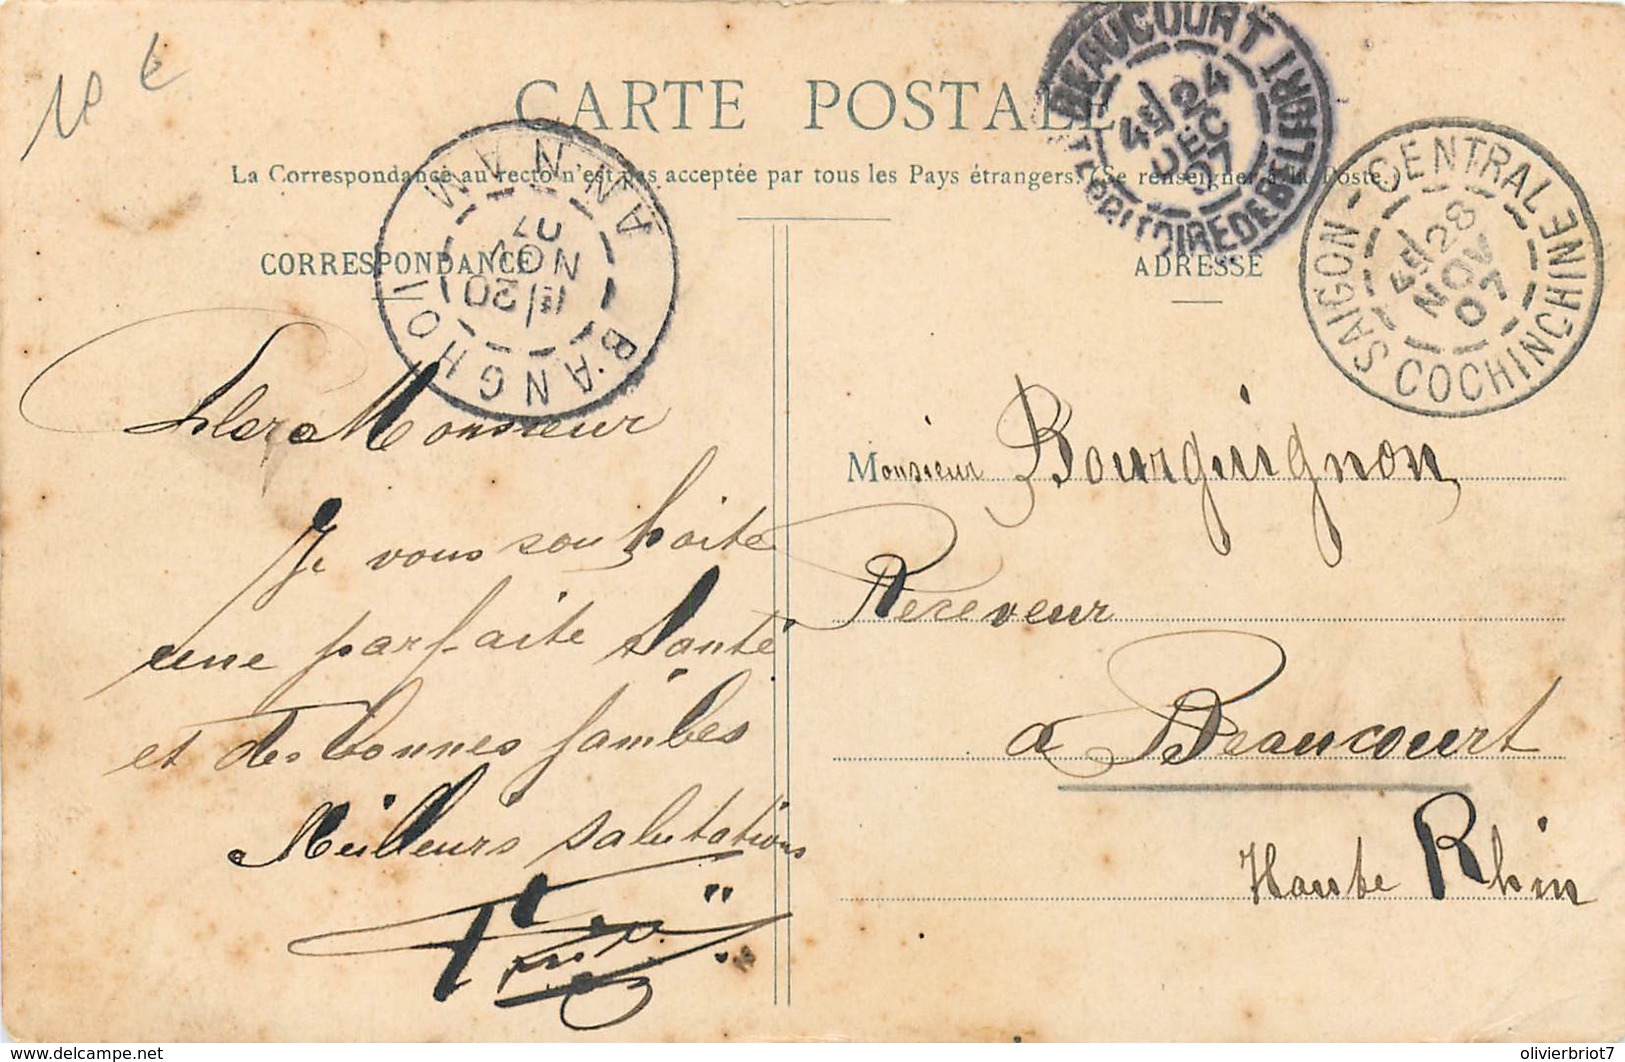 10 €
CARTE POSTALE
La Correspondance au recto n'est pas acceptée par tous les Pays étrangers. (Se renseigner à la Poste.)
BEAUCOURT
TERRITOIRE DE BELFORT
4E 24
DEC
07
SAIGON - CENTRAL
COCHINCHINE
4E 28
NOV
07
BANGHOI
ANNAM
1E/20
NOV
07
CORRESPONDANCE
ADRESSE
Cher Monsieur
Je vous souhaite
une parfaite santé
et des bonnes jambes
Meilleurs salutations
Monsieur Bourguignon
Receveur
a Beaucourt
Haute Rhin
www.delcampe.net
olivierbriot7